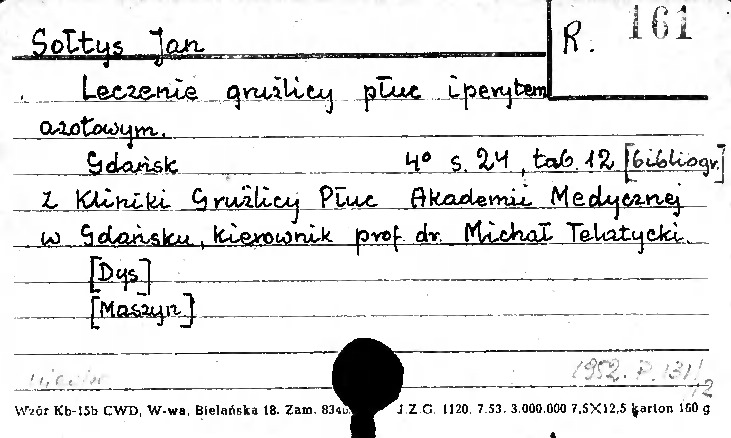 Sołtys Jan
R. 161
Leczenie gruźlicy płuc iperytem
azotowym.
Gdańsk 4° s. 24, tab. 12 [bibliogr.]
z Kliniki Gruźlicy Płuc Akademii Medycznej
w Gdańsku, kierownik prof. dr. Michał Telatycki.
[Dys]
[Maszyn]
1952. P. 131/
12
Wzór Kb-15b CWD, W-wa, Bielańska 18. Zam. Z.G. 1120. 7.53. 3.000.000 7,5X12,5 karton 160 g